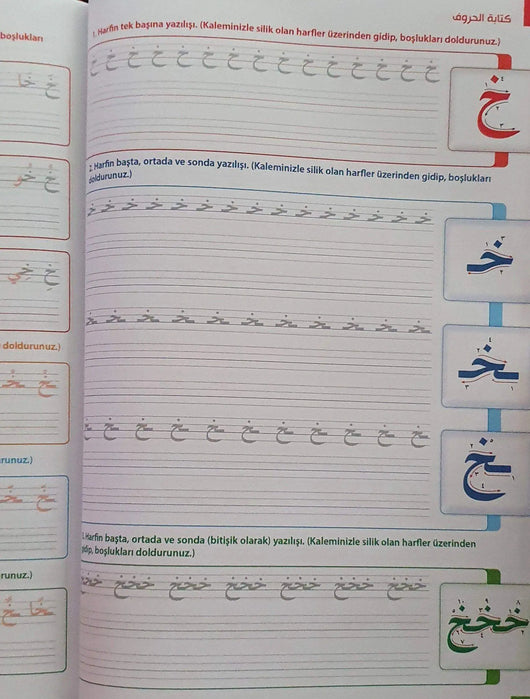 كتابة الحروف
1. Harfin tek başına yazılışı. (Kaleminizle silik olan harfler üzerinden gidip, boşlukları doldurunuz.)
خ
خ خ خ خ خ خ خ خ خ خ خ خ خ خ
2. Harfin başta, ortada ve sonda yazılışı. (Kaleminizle silik olan harfler üzerinden gidip, boşlukları
doldurunuz.)
خـ
خـ خـ خـ خـ خـ خـ خـ خـ خـ خـ خـ خـ
ـخـ
ـخـ ـخـ ـخـ ـخـ ـخـ ـخـ ـخـ ـخـ ـخـ ـخـ
ـخ
ـخ ـخ ـخ ـخ ـخ ـخ ـخ ـخ ـخ ـخ
Harfin başta, ortada ve sonda (bitişik olarak) yazılışı. (Kaleminizle silik olan harfler üzerinden
gidip, boşlukları doldurunuz.)
خخخ
خخخ خخخ خخخ خخخ خخخ خخخ خخخ
boşlukları
doldurunuz.)